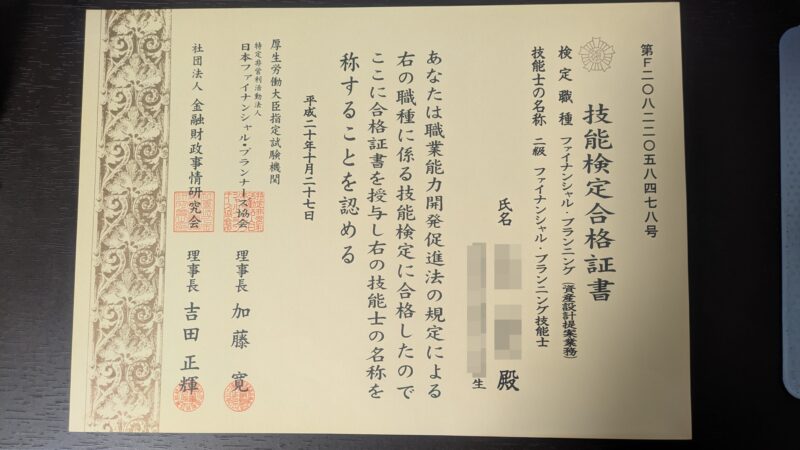 第F二〇八二二〇五八四七八号
技能検定合格証書
検定職種 ファイナンシャル・プランニング(資産設計提案業務)
技能士の名称 二級 ファイナンシャル・プランニング技能士
氏名 殿
生
あなたは職業能力開発促進法の規定による
右の職種に係る技能検定に合格したので
ここに合格証書を授与し右の技能士の名称を
称することを認める
平成二十年十月二十七日
厚生労働大臣指定試験機関
特定非営利活動法人
日本ファイナンシャル・プランナーズ協会 理事長 加藤寛
社団法人 金融財政事情研究会 理事長 吉田正輝